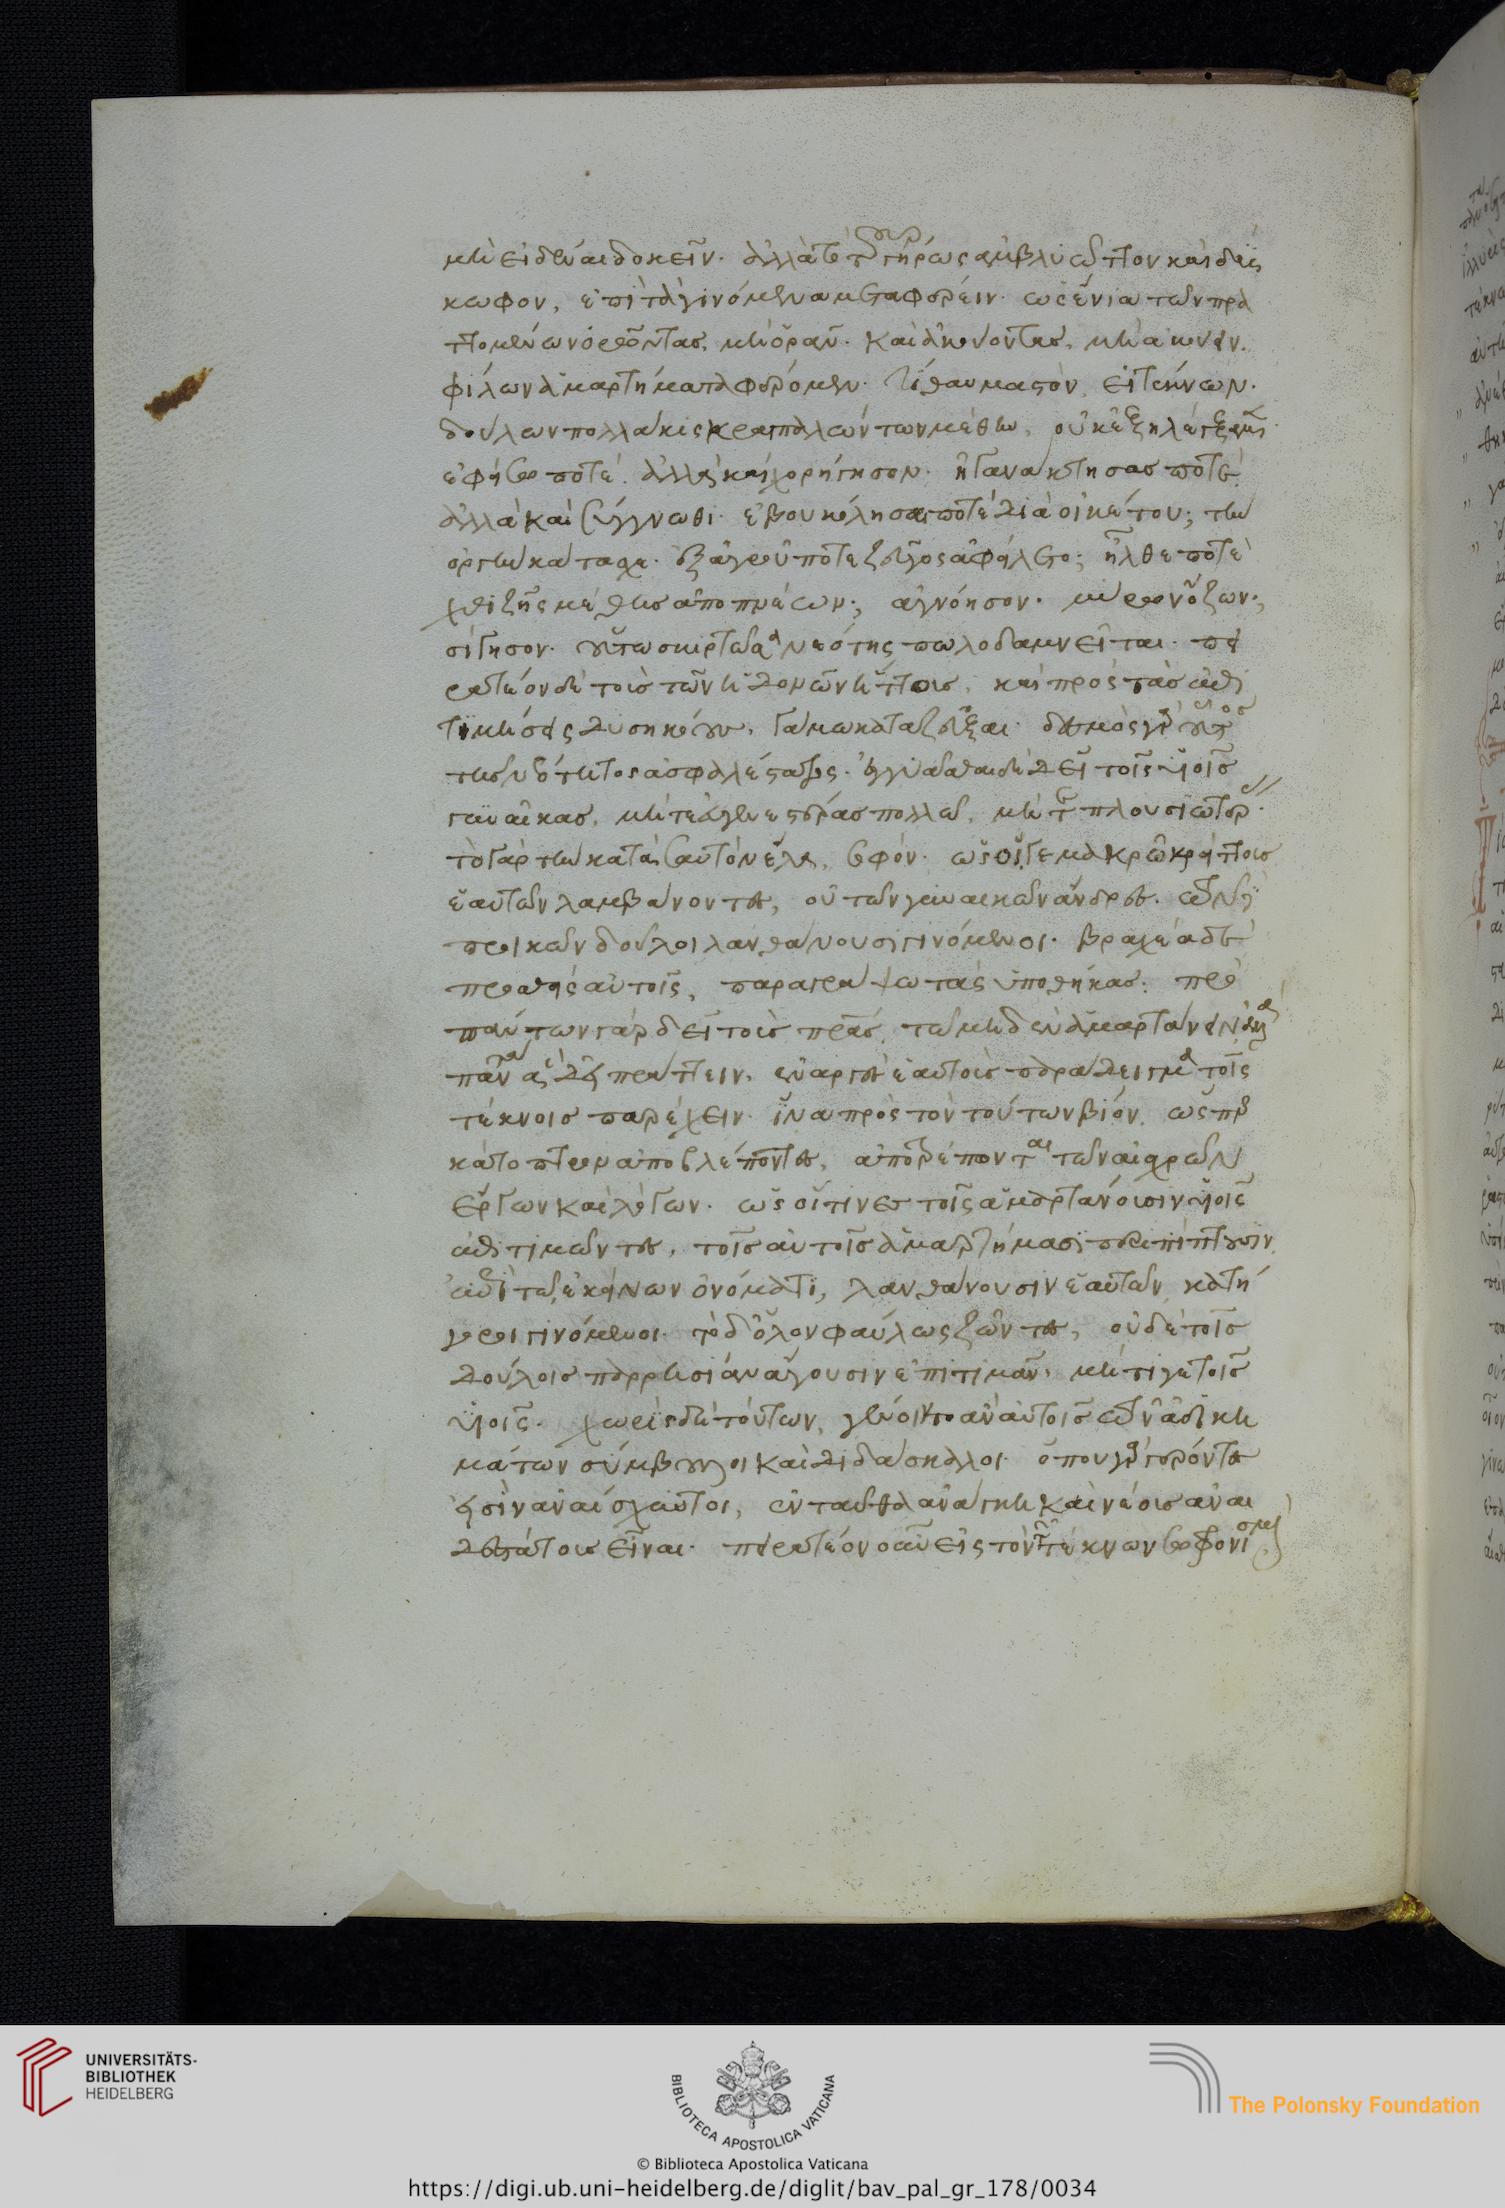 μὴ εἰδέναι δοκεῖν. ἀλλὰ τὸ τοῦ γήρως ἀμβλυῶττον καὶ δύσ
κωφον, ἐπὶ τὰ γινόμενα μεταφέρειν. ὡς ἔνια τῶν πρα
ττομένων ὁρῶντας, μὴ ὁρᾶν. καὶ ἀκούοντας, μὴ ἀκούειν.
φίλων ἁμαρτήματα φέρομεν. τί θαυμαστὸν, εἰ τέκνων.
δούλων πολλάκις κραιπαλώντων μέθην, οὐκ ἐξηλέγξαμεν.
ἐφείσω ποτέ. ἀλλὰ καὶ χορήγησον. ἠγανάκτησας ποτέ.
ἀλλὰ καὶ σύγγνωθι. ἐβουκόλησε ποτὲ διὰ οἰκέτου; τὴν
ὀργὴν κατασχε. ἐξ ἀγροῦ ποτε ζεῦγος ἀφείλετο; ἦλθε ποτὲ
χθιζῆς μέθης ἀποπνέων; ἀγνόησον. μύρων ὄζων;
σίγησον. οὕτω σκιρτῶσα νεότης πωλοδαμνεῖται. πει
ρατέον δὲ τοὺς τῶν ἡδονῶν ἥττους, καὶ πρὸς τὰς ἐπι
τιμήσεις δυσηκόους, γάμω καταζεῦξαι. δεσμὸς γὰρ οὗτος
τῆς νεότητος ἀσφαλέστατος. ἐγγυᾶσθαι δὲ δεῖ τοῖς υἱοῖς
γυναῖκας, μήτε εὐγενεστέρας πολλῶ, μήτε πλουσιωτέρας.
τὸ γὰρ τὴν κατὰ σαυτὸν ἔλα, σοφόν. ὡς οἵ γε μακρῶ κρείττους
ἑαυτῶν λαμβάνοντες, οὐ τῶν γυναικῶν ἄνδρες. τῶν δὲ
προικῶν δοῦλοι λανθάνουσι γινόμενοι. βραχέα δὲ
προσθεὶς αὐτοῖς, παραγράψω τὰς ὑποθήκας. πρὸ
πάντων γὰρ δεῖ τοὺς πατέρας, τῶ μηδὲν ἁμαρτάνειν ἀλλὰ
πάντα ἃ δεῖ πράττειν, ἐναργὲς ἑαυτοὺς παράδειγμα τοῖς
τέκνοις παρέχειν. ἵνα πρὸς τὸν τούτων βίον, ὥσπερ
κάτοπτρον ἀποβλέποντες, ἀποτρέπονται τῶν αἰσχρῶν
ἔργων καὶ λόγων. ὡς οἵτινες τοῖς ἁμαρτάνουσιν υἱοῖς
ἐπιτιμῶντες, τοῖς αὐτοῖς ἁμαρτήμασι περιπίπτουσιν,
ἐπὶ τῶ ἐκείνων ὀνόματι, λανθάνουσιν ἑαυτῶν κατή
γοροι γινόμενοι. τὸ δ' ὅλον φαύλως ζῶντες, οὐδὲ τοῖς
δούλοις παρρησίαν ἄγουσιν ἐπιτιμᾶν, μήτι γε τοῖς
υἱοῖς. χωρὶς δὲ τούτων, γένοιντο ἂν αὐτοῖς τῶν ἀδικη
μάτων σύμβουλοι καὶ διδάσκαλοι. ὅπου γὰρ γέροντες
εἰσὶν ἀναίσχυντοι, ἐνταῦθα ἀνάγκη καὶ νέους ἀναι
δεστάτους εἶναι. πειρατέον οὖν εἰς τὸν τῶν τέκνων σωφρονισμὸν
UNIVERSITÄTS-
BIBLIOTHEK
HEIDELBERG
BIBLIOTECA APOSTOLICA VATICANA
© Biblioteca Apostolica Vaticana
The Polonsky Foundation
https://digi.ub.uni-heidelberg.de/diglit/bav_pal_gr_178/0034